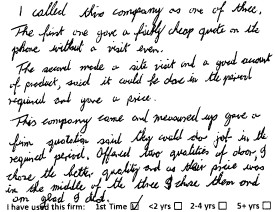 I called this company as one of three,
The first one gave a fairly cheap quote on the
phone without a visit even.
The second made a site visit and a good account
of product, said it could be done in the period
required and gave a price.
This company came and measured up gave a
firm quotation said they could do job in the
required period. Offered two qualities of door, I
chose the better quality and as their price was
in the middle of the three I chose them and
am glad I did.
I have used this firm: 1st Time ☑ <2 yrs ☐ 2-4 yrs ☐ 5+ yrs ☐